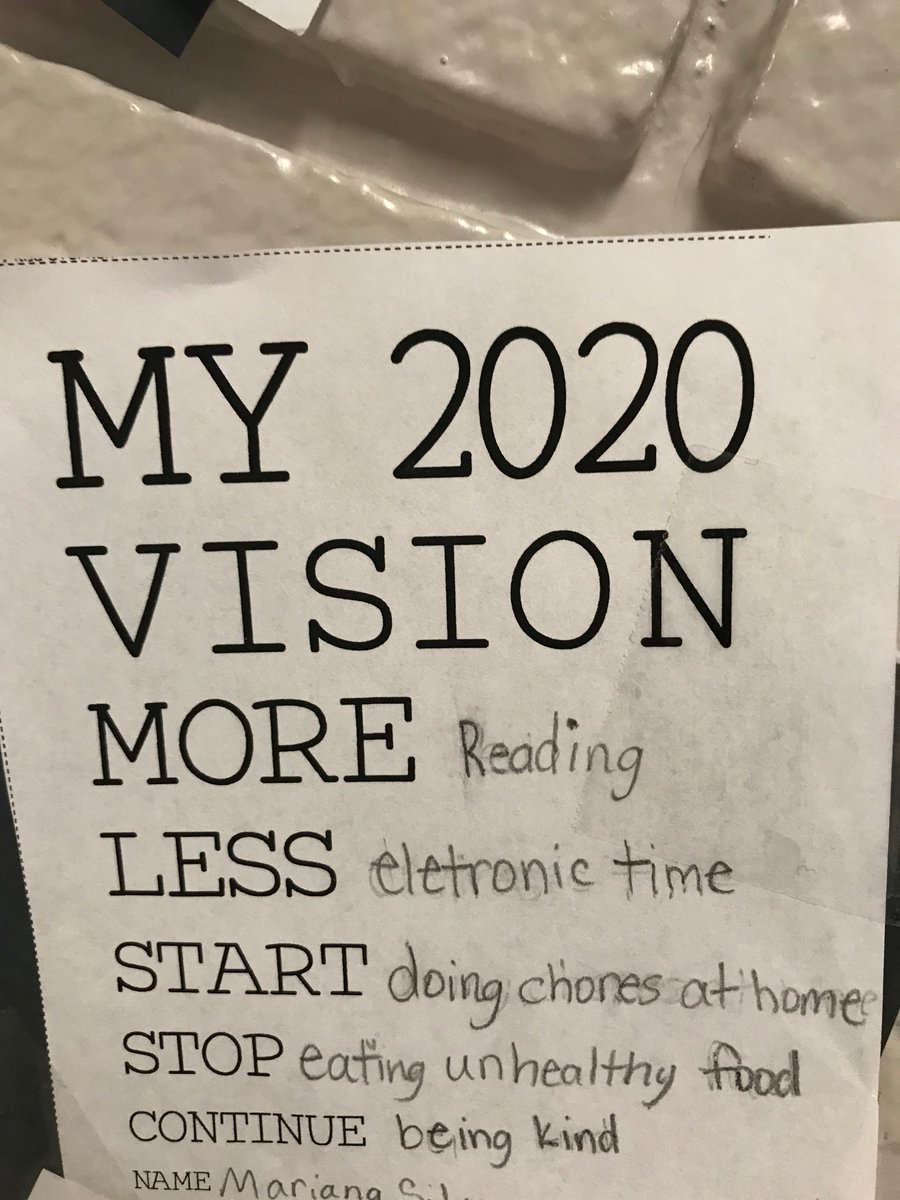 MY 2020
VISION
MORE Reading
LESS eletronic time
START doing chores at home
STOP eating unhealthy food
CONTINUE being kind
NAME Mariana